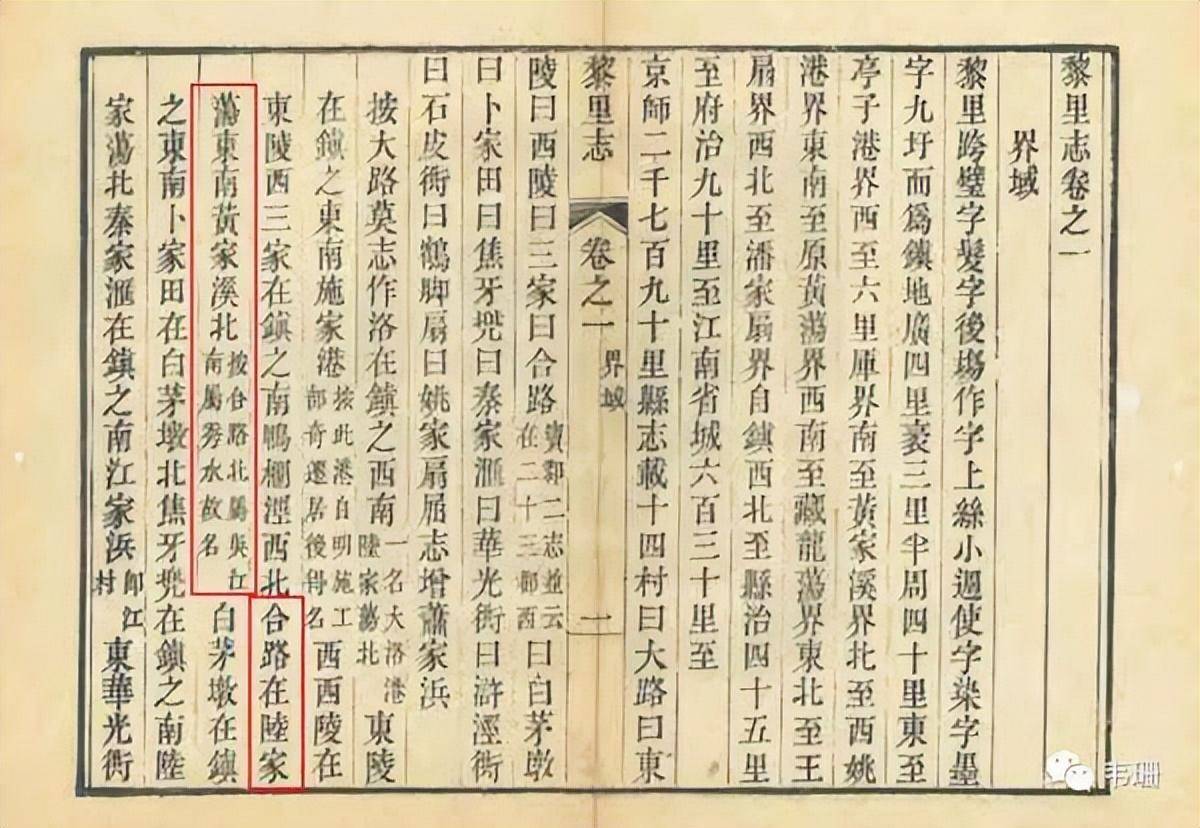 黎里志卷之一
界域
黎里跨璧字髮字後塲作字上絲小週使字染字墨
字九圩而爲鎮地廣四里袤三里半周四十里東至
亭子港界西至六里庫界南至黃家溪界北至西姚
港界東南至原黃蕩界西南至藏龍蕩界東北至王
扇界西北至潘家扇界自鎮西北至縣治四十五里
至府治九十里至江南省城六百三十里至
京師二千七百九十里縣志載十四村曰大路曰東
黎里志 卷之一 界域 一
陵曰西陵曰三家曰合路
在二十三都西
曰白茅墩
曰卜家田曰焦牙兠曰秦家滙曰華光衖曰滸涇衖
曰石皮衖曰鶴脚扇曰姚家扇屈志增蕭家浜
按大路莫志作洛在鎮之西南
一名大洛港
陸家蕩北
東陵
在鎮之東南施家港
按此港自明施工
部奇遷居後得名
西西陵在
東陵西三家在鎮之南鴨欄涇西北合路在陸家
蕩東南黃家溪北
按合路北屬吳江
南屬秀水故名
白茅墩在鎮
之東南卜家田在白茅墩北焦牙兠在鎮之南陸
家蕩北秦家滙在鎮之南江家浜
卽江
村
東華光衖
韦珊